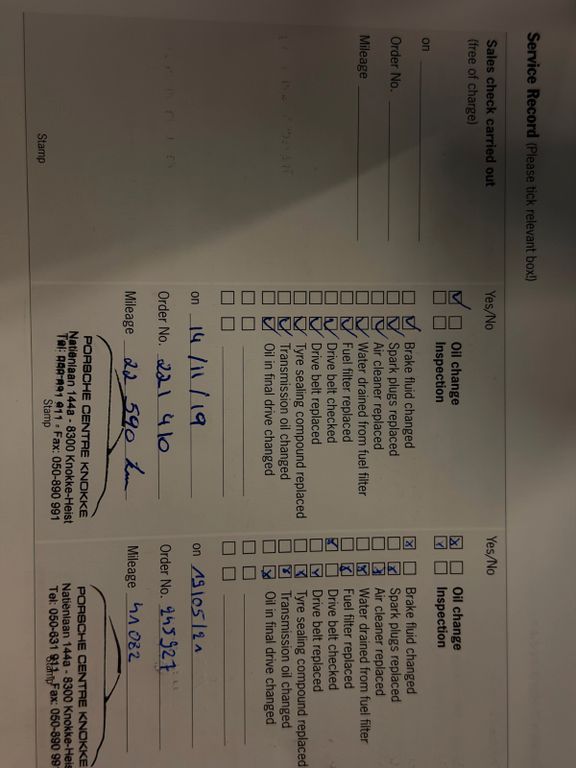 Service Record (Please tick relevant box!)
Sales check carried out
(free of charge)
on
Order No.
Mileage
Stamp
Yes/No
Oil change
Inspection
Brake fluid changed
Spark plugs replaced
Air cleaner replaced
Water drained from fuel filter
Fuel filter replaced
Drive belt checked
Drive belt replaced
Tyre sealing compound replaced
Transmission oil changed
Oil in final drive changed
on 14/11/19
Order No. 221 410
Mileage 22 590 km
PORSCHE CENTRE KNOKKE
Natiënlaan 144a - 8300 Knokke-Heist
Fax: 050-890 991
Stamp
Yes/No
Oil change
Inspection
Brake fluid changed
Spark plugs replaced
Air cleaner replaced
Water drained from fuel filter
Fuel filter replaced
Drive belt checked
Drive belt replaced
Tyre sealing compound replaced
Transmission oil changed
Oil in final drive changed
on 19/05/21
Order No. 243927
Mileage 41 082
PORSCHE CENTRE KNOKKE
Natiënlaan 144a - 8300 Knokke-Heis
Tel: 050-631 911 Fax: 050-890 99
Stamp